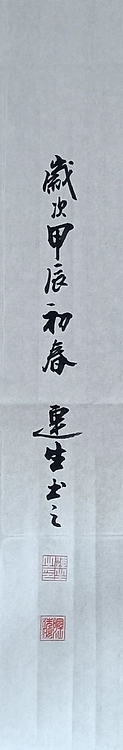 歲次甲辰初春 運生书之